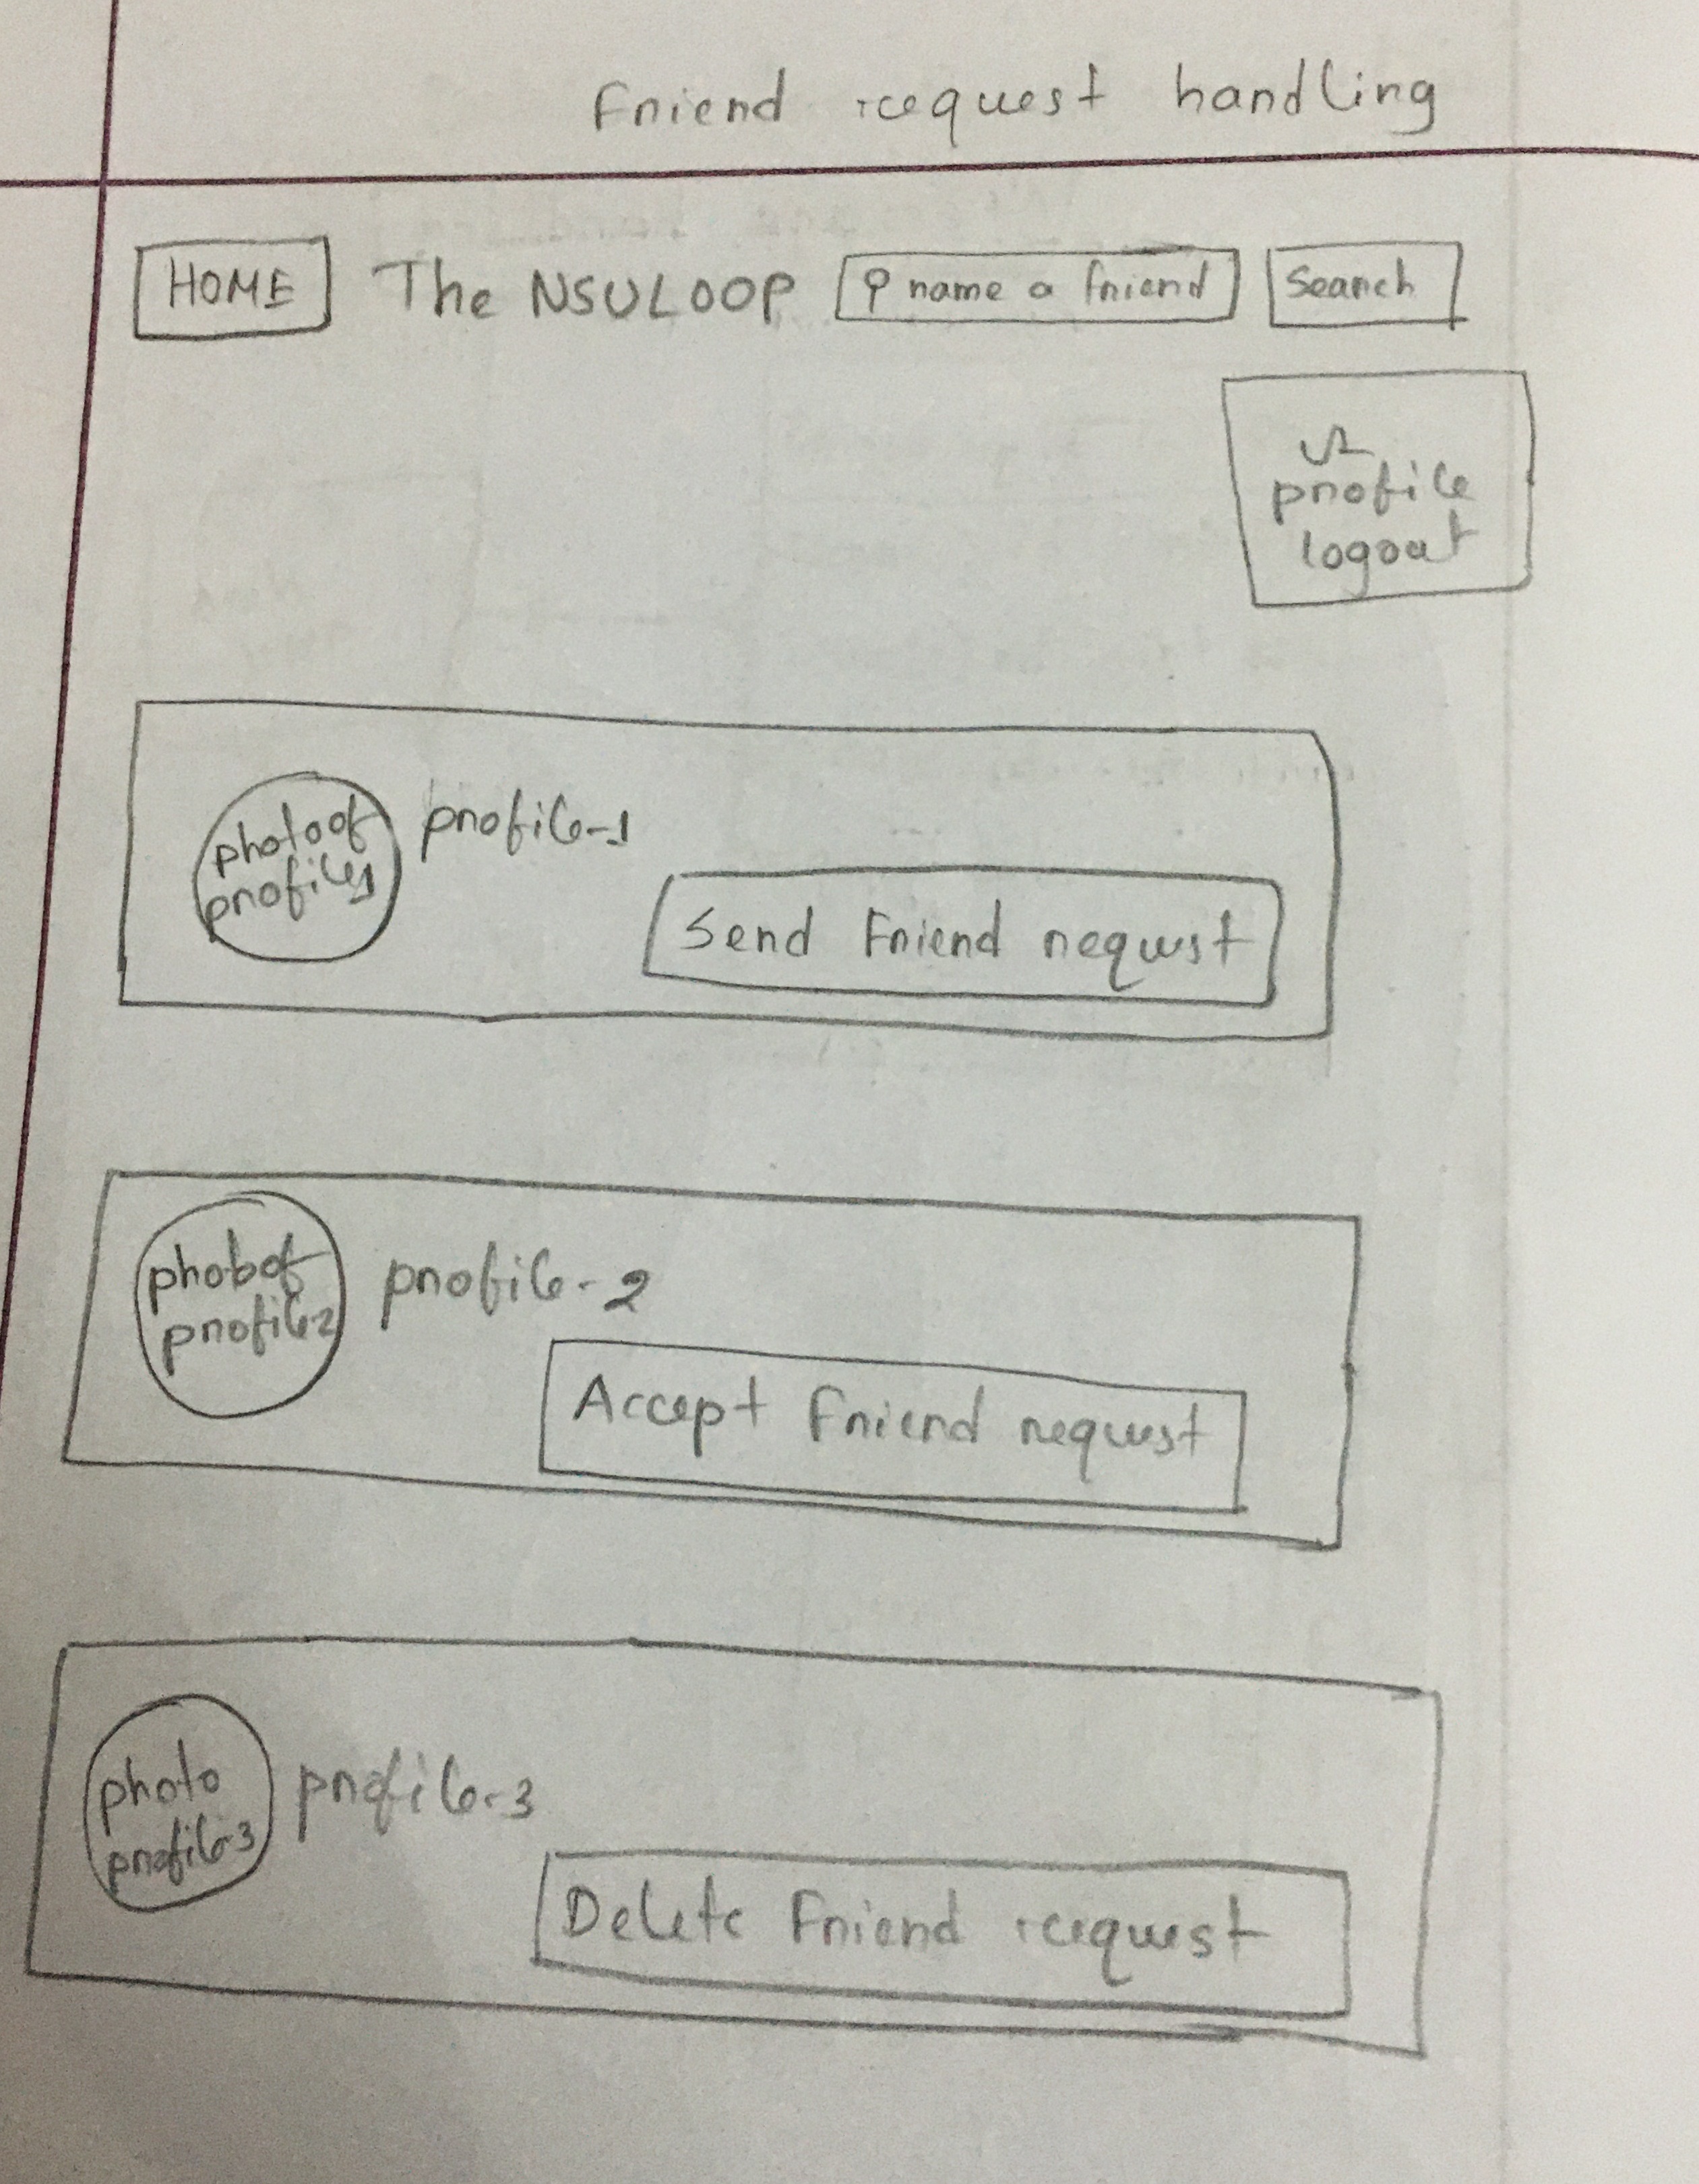 Friend request handling
HOME The NSULOOP name a friend Search
profile
logout
photo of
profile1
profile-1
Send Friend request
photo of
profile-2
profile-2
Accept Friend request
photo
profile-3
profile-3
Delete Friend request